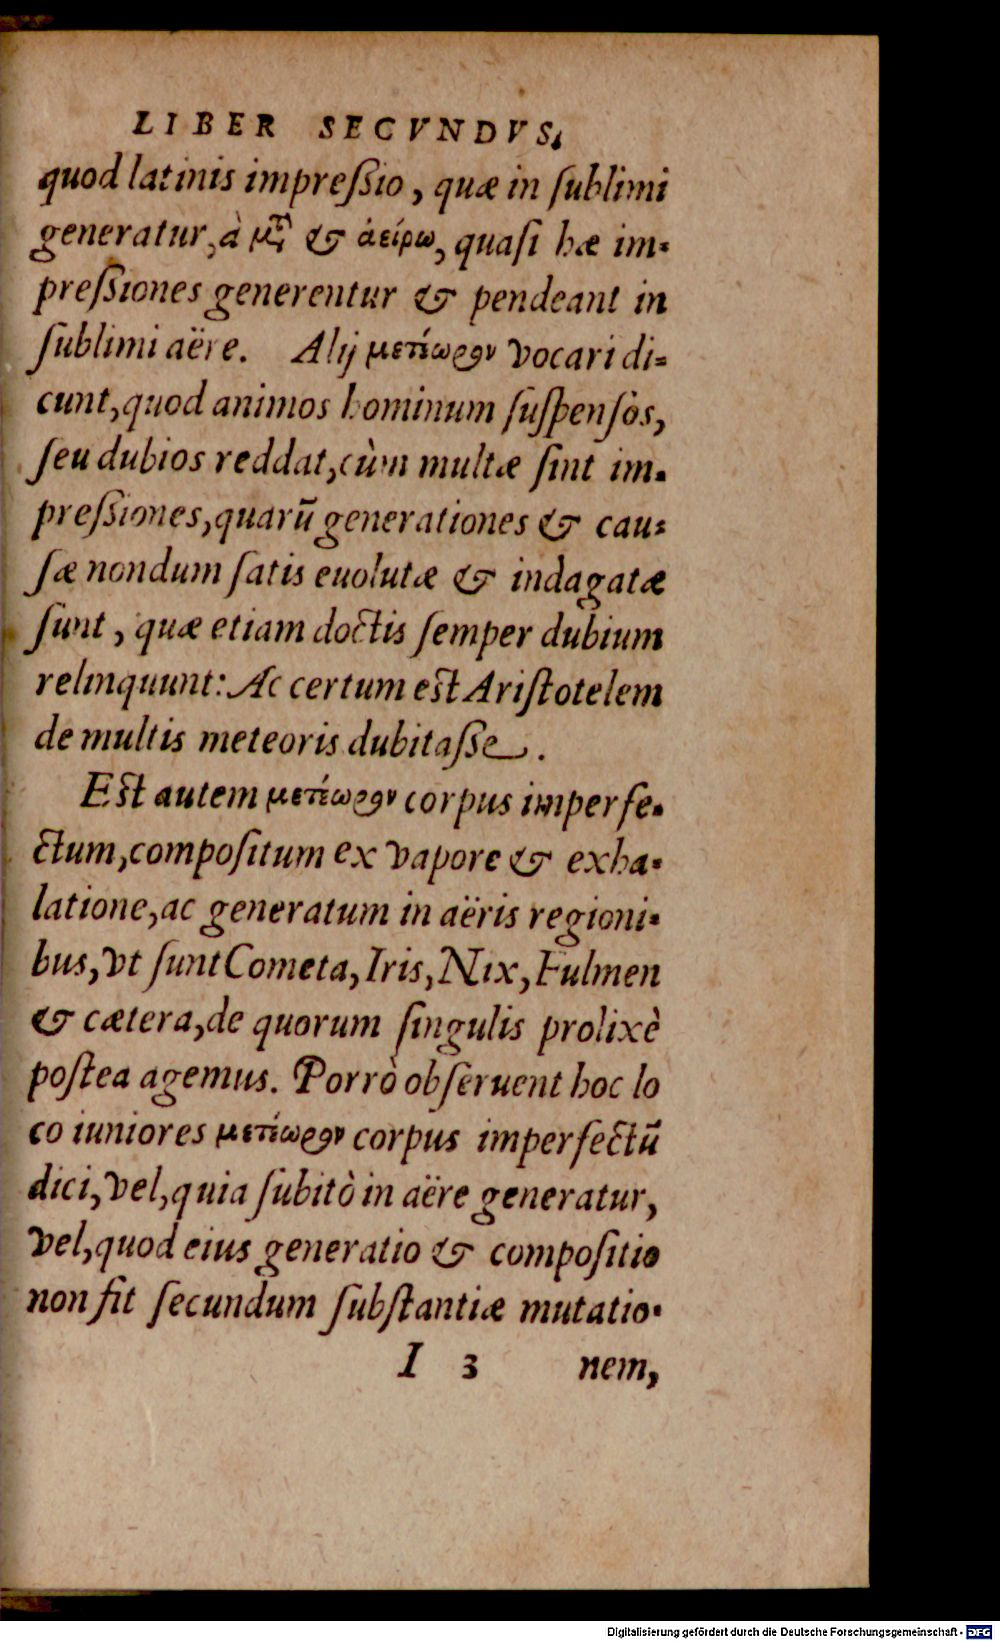 LIBER SECVNDVS.
quod latinis impreſsio, quæ in ſublimi
generatur, à μ̃ & ἀείρω, quaſi hæ im-
preſsiones generentur & pendeant in
ſublimi aëre. Alij μετέωρον vocari di-
cunt, quod animos hominum ſuſpenſos,
ſeu dubios reddat, cùm multæ ſint im-
preſsiones, quarũ generationes & cau-
ſæ nondum ſatis euolutæ & indagatæ
ſunt, quæ etiam doctis ſemper dubium
relinquunt: Ac certum eſt Ariſtotelem
de multis meteoris dubitaſſe.
Eſt autem μετέωρον corpus imperfe-
ctum, compoſitum ex vapore & exha-
latione, ac generatum in aëris regioni-
bus, vt ſunt Cometa, Iris, Nix, Fulmen
& cætera, de quorum ſingulis prolixè
poſtea agemus. Porrò obſeruent hoc lo
co iuniores μετέωρον corpus imperfectũ
dici, vel, quia ſubitò in aëre generatur,
vel, quod eius generatio & compoſitio
non fit ſecundum ſubſtantiæ mutatio-
I 3 nem,
Digitalisierung gefördert durch die Deutsche Forschungsgemeinschaft - DFG